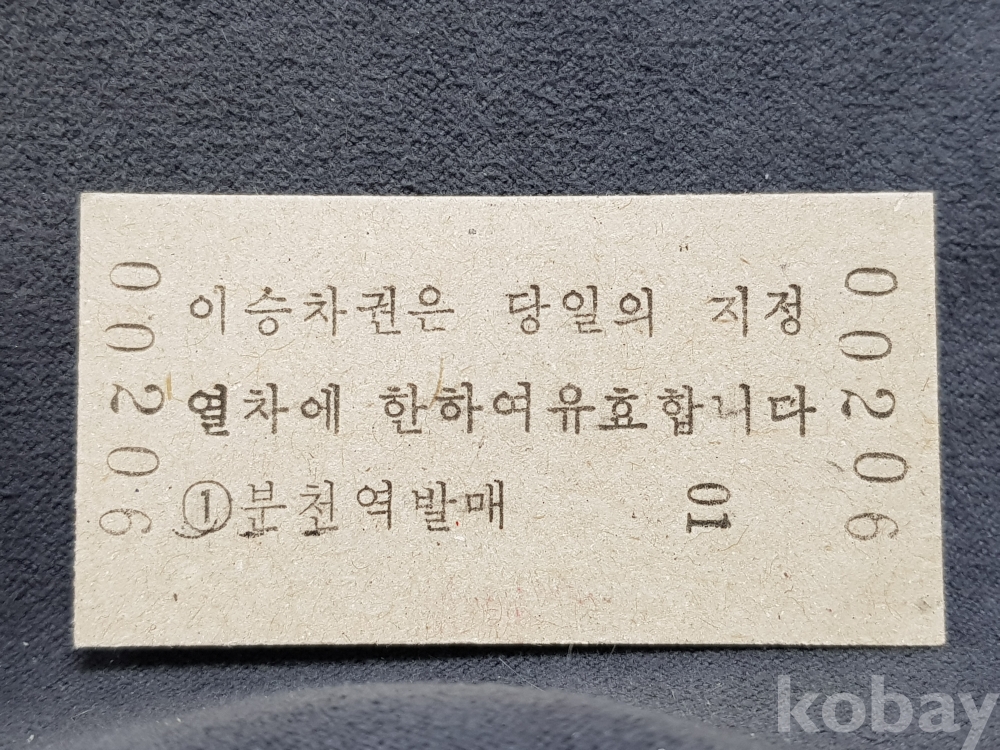 00206
이승차권은 당일의 지정
열차에 한하여유효합니다
①분천역발매 01
00206
kobay